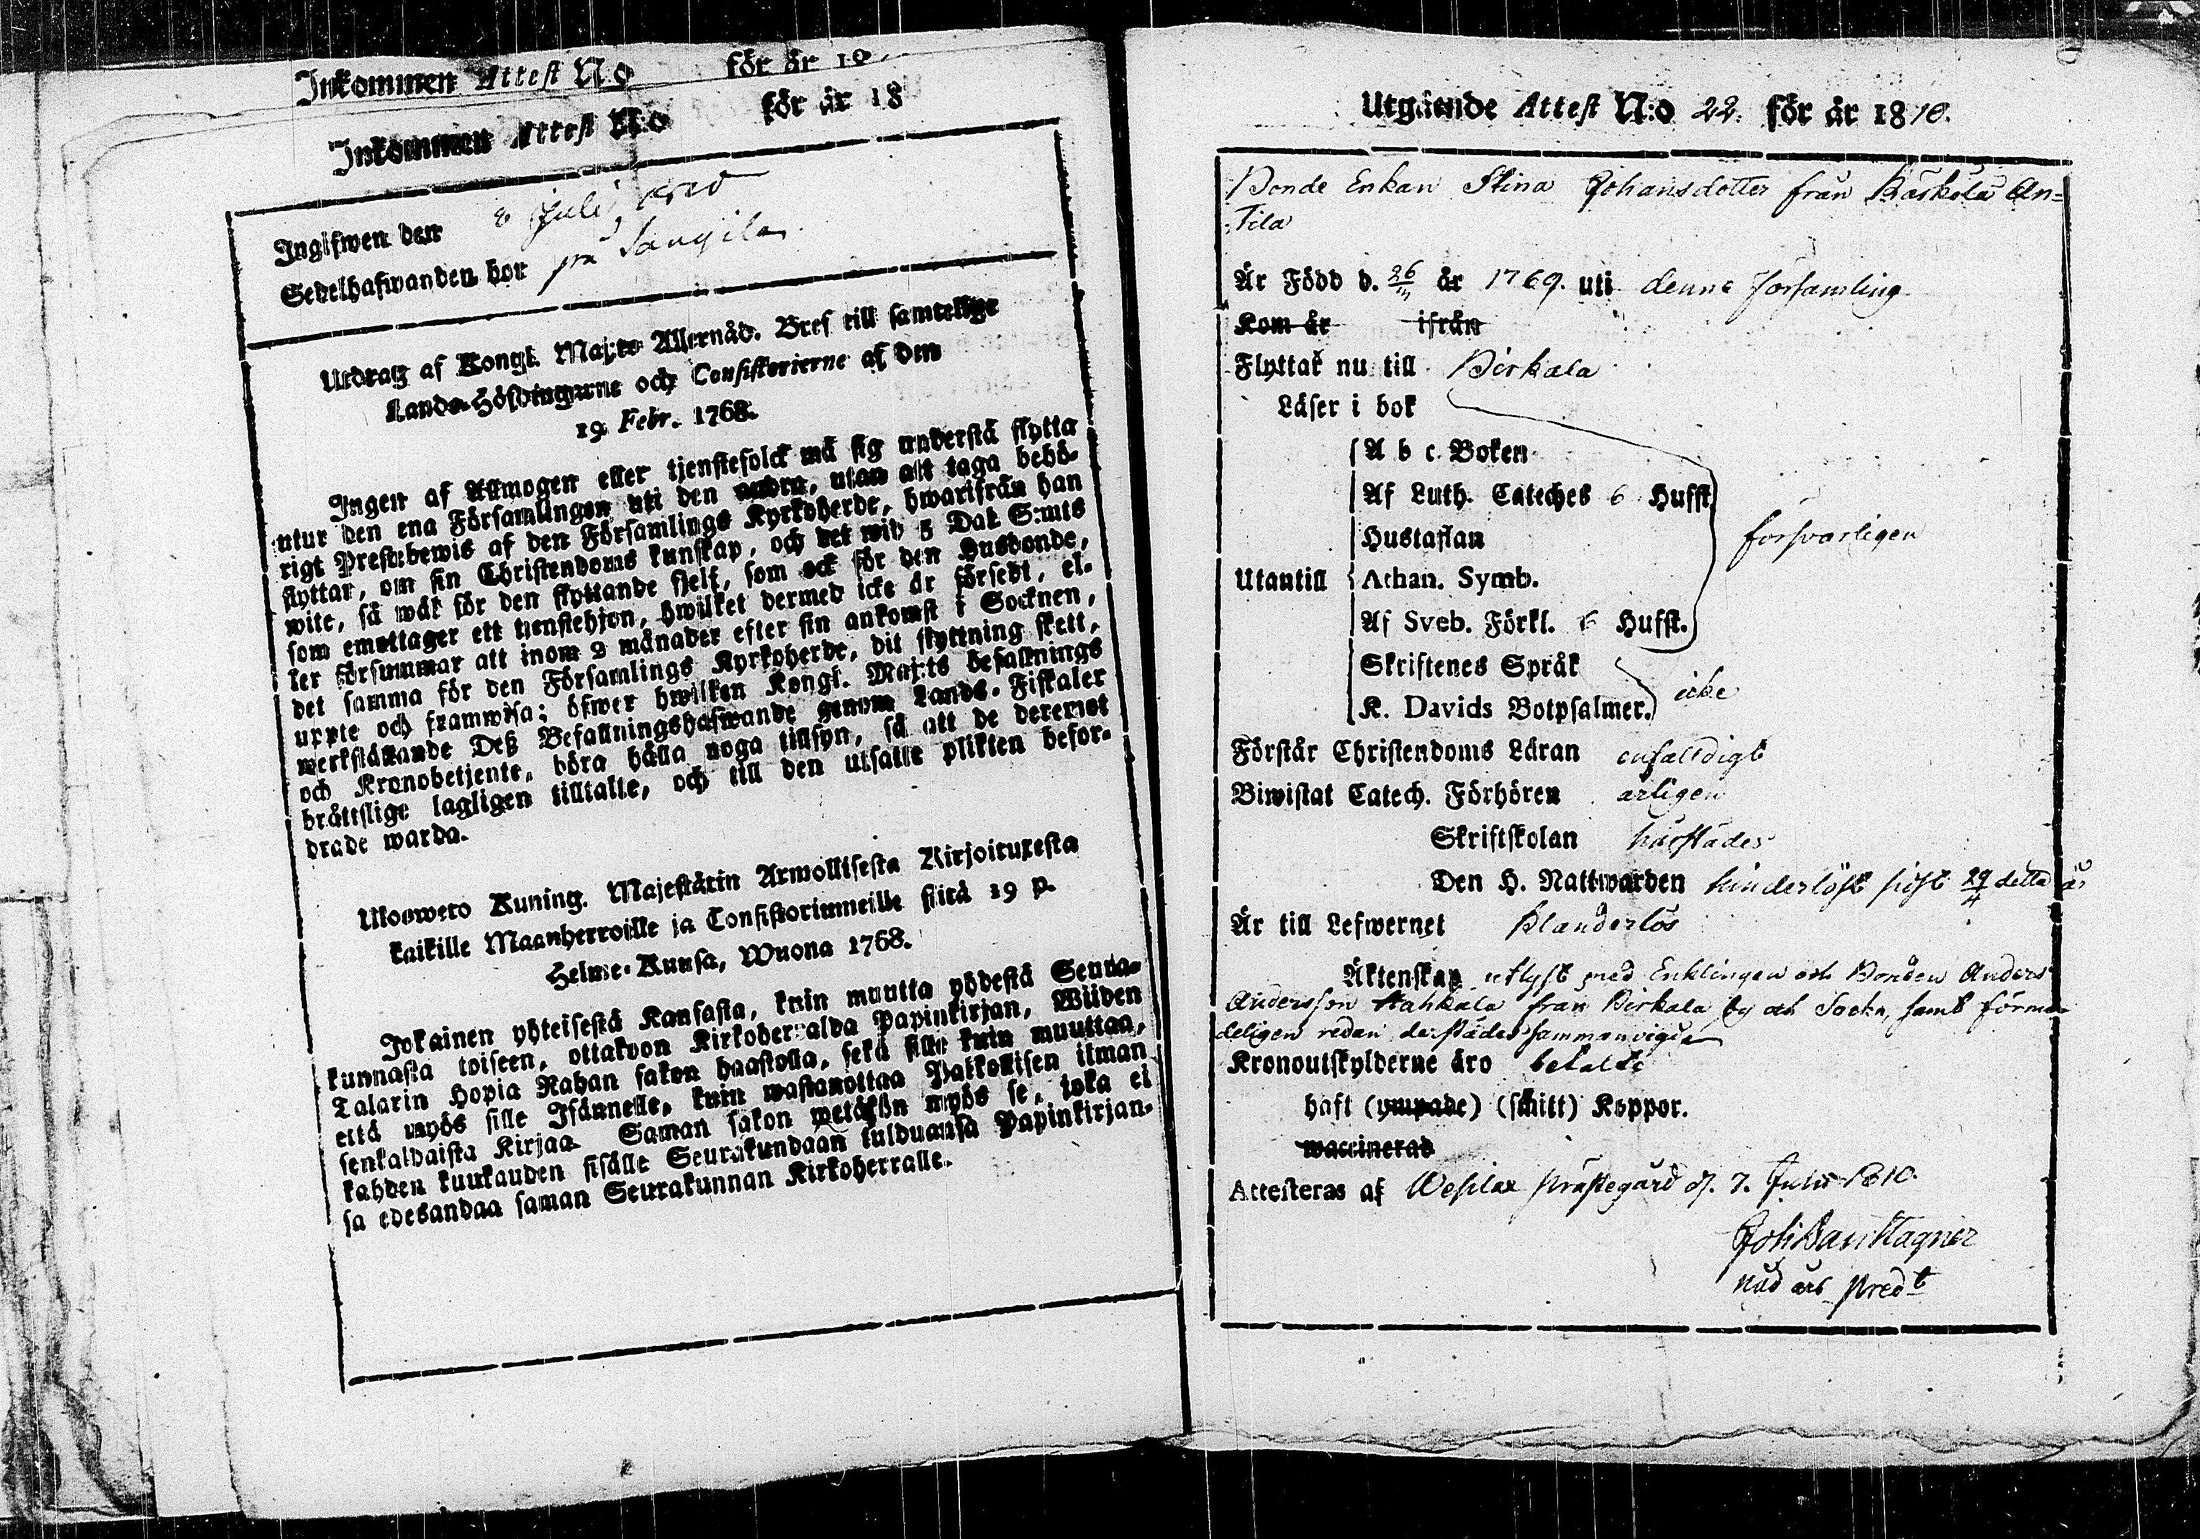 Inkommen Attest N:o för år 18
Inkommen Attest N:o för år 18
Ingifwen den 8 Juli 1810
Sedelhafwanden bor på Sangila
Utdrag af Kongl. Maj:ts Allernåd. Bref till samtelige
Lands-Höfdingarne och Consistorierne af den
19 Febr. 1768.
Ingen af Allmogen eller tjenstefolck må sig understå flytta
utur den ena Församlingen uti den andra, utan att taga behö-
rigt Prestebewis af den Församlings Kyrkoherde, hwarifrån han
flyttar, om sin Christendoms kunskap, och det wid 5 Dal. S:mts
wite, så wäl för den flyttande sjelf, som ock för den Husbonde,
som emottager ett tjenstehjon, hwilket dermed icke är försedt, el-
ler försummar att inom 2 månader efter sin ankomst i Socknen,
det samma för den Församlings Kyrkoherde, dit flyttning skett,
uppte och framwisa; öfwer hwilken Kongl. Maj:ts befallnings
werkställande Deß Befallningshafwande genom Lands-Fiskaler
och Kronobetjente, böra hålla noga tillsyn, så att de deremot
bråttslige lagligen tilltalte, och till den utsatte plikten befor-
drade warda.
Uloswero Kuning. Majestätin Armollisesta Kirjoituxesta
kaikille Maanherroille ja Consistoriumeille siitä 19 p.
Helme-Kuusa, Wuona 1768.
Jokainen yhteisestä Kansasta, kuin muutta yhdestä Seura-
kunnasta toiseen, ottakoon Kirkoherralda Papinkirjan, Wiiden
Talarin Hopia Rahan sakon haastolla, sekä sille kuin muuttaa,
että myös sille Isännelle, kuin wastanottaa Palkollisen ilman
senkaldaista Kirjaa. Saman sakon wetäkön myös se, joka ei
kahden kuukauden sisälle Seurakundaan tulduansa Papinkirjan-
sa edesandaa saman Seurakunnan Kirkoherralle.
Utgående Attest N:o 22. för år 1810.
Bonde Enkan Stina Johansdotter från Kärkölä An-
tila
Är Född d. 26 år 1769. uti denna församling
Kom år ifrån
Flyttar nu till Birkala
Läser i bok
A b c Boken
Af Luth. Cateches 6 Hufst.
Hustaflan försvarligen
Utantill Athan. Symb.
Af Sveb. Förkl. 6 Hufst.
Skriftenes Språk
K. Davids Botpsalmer. icke
Förstår Christendoms Läran enfalldigt
Biwistat Catech. Förhören årligen
Skriftskolan härstädes
Den H. Nattwarden hinderlöst sist 29/4 detta år
Är till Lefwernet Klanderlös
Äktenskap utlyst med Enklingen och Bonden Anders
Andersson Hahkala från Birkala by och Sockn, samt förmo-
deligen redan derstädes sammanvigd
Kronoutskylderne äro betalte
haft (ympade) (sjelft) Koppor.
waccinerad
Attesteras af Wesilax Prästegård d. 7. Julii 1810.
Joh Dav Wagner
Nåd års Pred:t